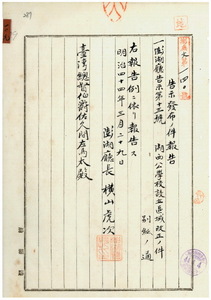 告示發布ノ件報告
一澎湖廳告示第十三號 湖西公學校設立區域改正ノ件
別紙ノ通
右報告例ニ依リ報告ス
明治四十四年三月二十九日
澎湖廳長 橫山虎次
臺灣總督伯爵佐久間左馬太殿